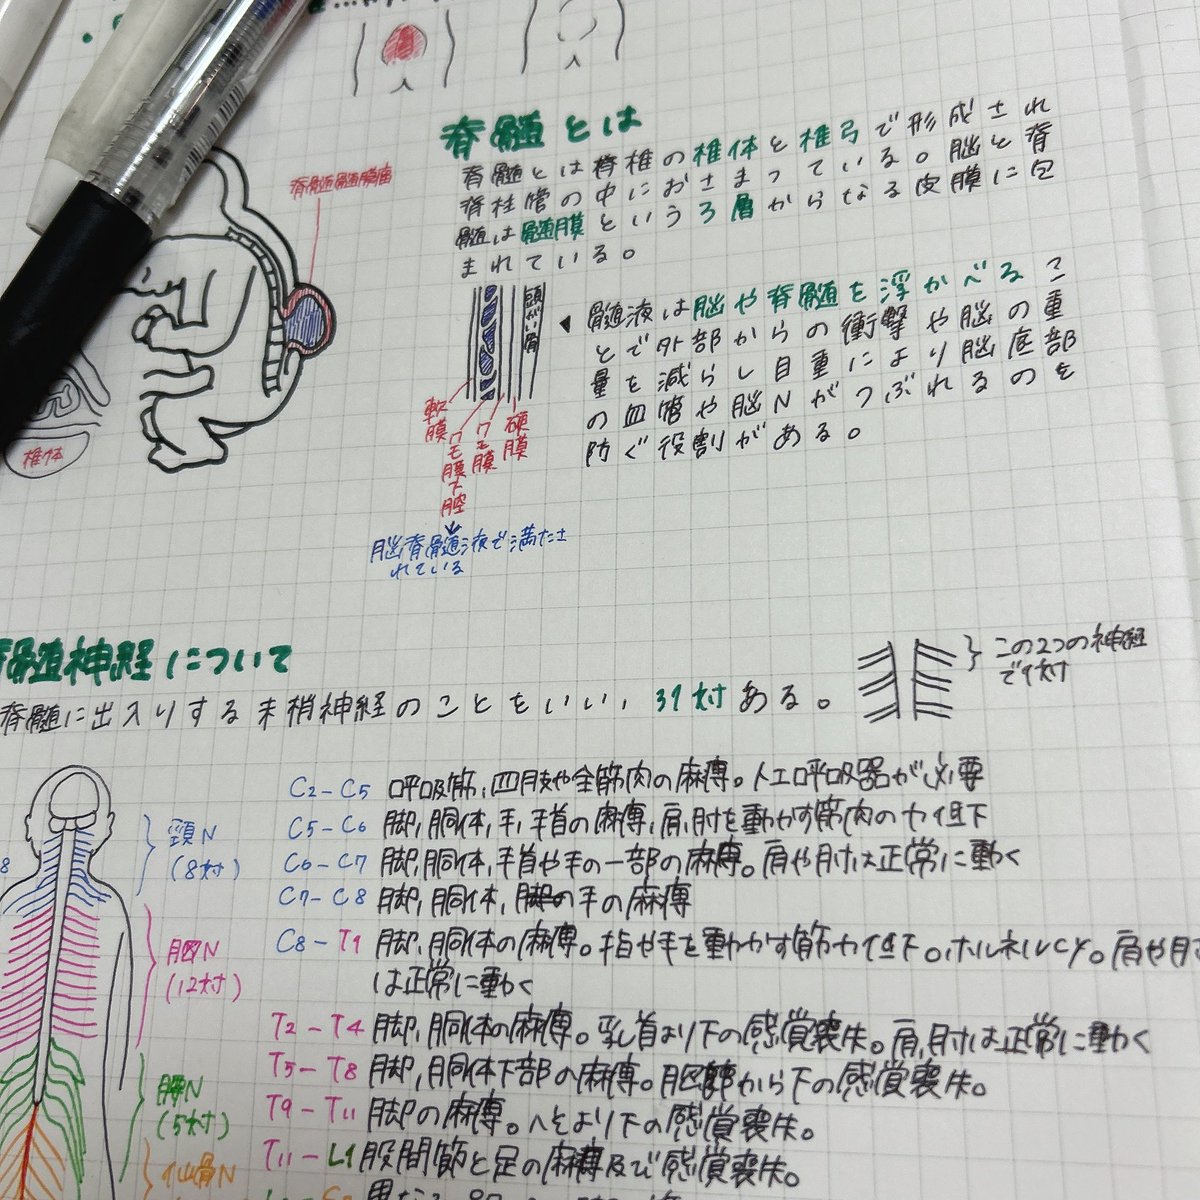 脊髄とは
脊髄とは脊椎の椎体と椎弓で形成され
脊柱管の中におさまっている。脳と脊
髄は髄膜という3層からなる皮膜に包
まれている。
脊髄髄膜瘤
椎体
頭がい骨
軟膜
クモ膜下腔
クモ膜
硬膜
脳脊髄液で満たさ
れている
髄液は脳や脊髄を浮かべるこ
とで外部からの衝撃や脳の重
量を減らし自重により脳底部
の血管や脳Nがつぶれるのを
防ぐ役割がある。
脊髄神経について
脊髄に出入りする末梢神経のことをいい、31対ある。
この2つの神経
で1対
頸N
(8対)
胸N
(12対)
腰N
(5対)
仙骨N
C2-C5 呼吸筋、四肢や全筋肉の麻痺。人工呼吸器が必要
C5-C6 脚、胴体、手、手首の麻痺、肩、肘を動かす筋肉の力低下
C6-C7 脚、胴体、手首や手の一部の麻痺。肩や肘は正常に動く
C7-C8 脚、胴体、の手の麻痺
C8-T1 脚、胴体の麻痺。指や手を動かす筋力低下。ホルネルCy。肩や肘
は正常に動く
T2-T4 脚、胴体の麻痺。乳首より下の感覚喪失。肩、肘は正常に動く
T5-T8 脚、胴体下部の麻痺。胸郭から下の感覚喪失。
T9-T11 脚の麻痺。へそより下の感覚喪失。
T11-L1 股関節と足の麻痺及び感覚喪失。